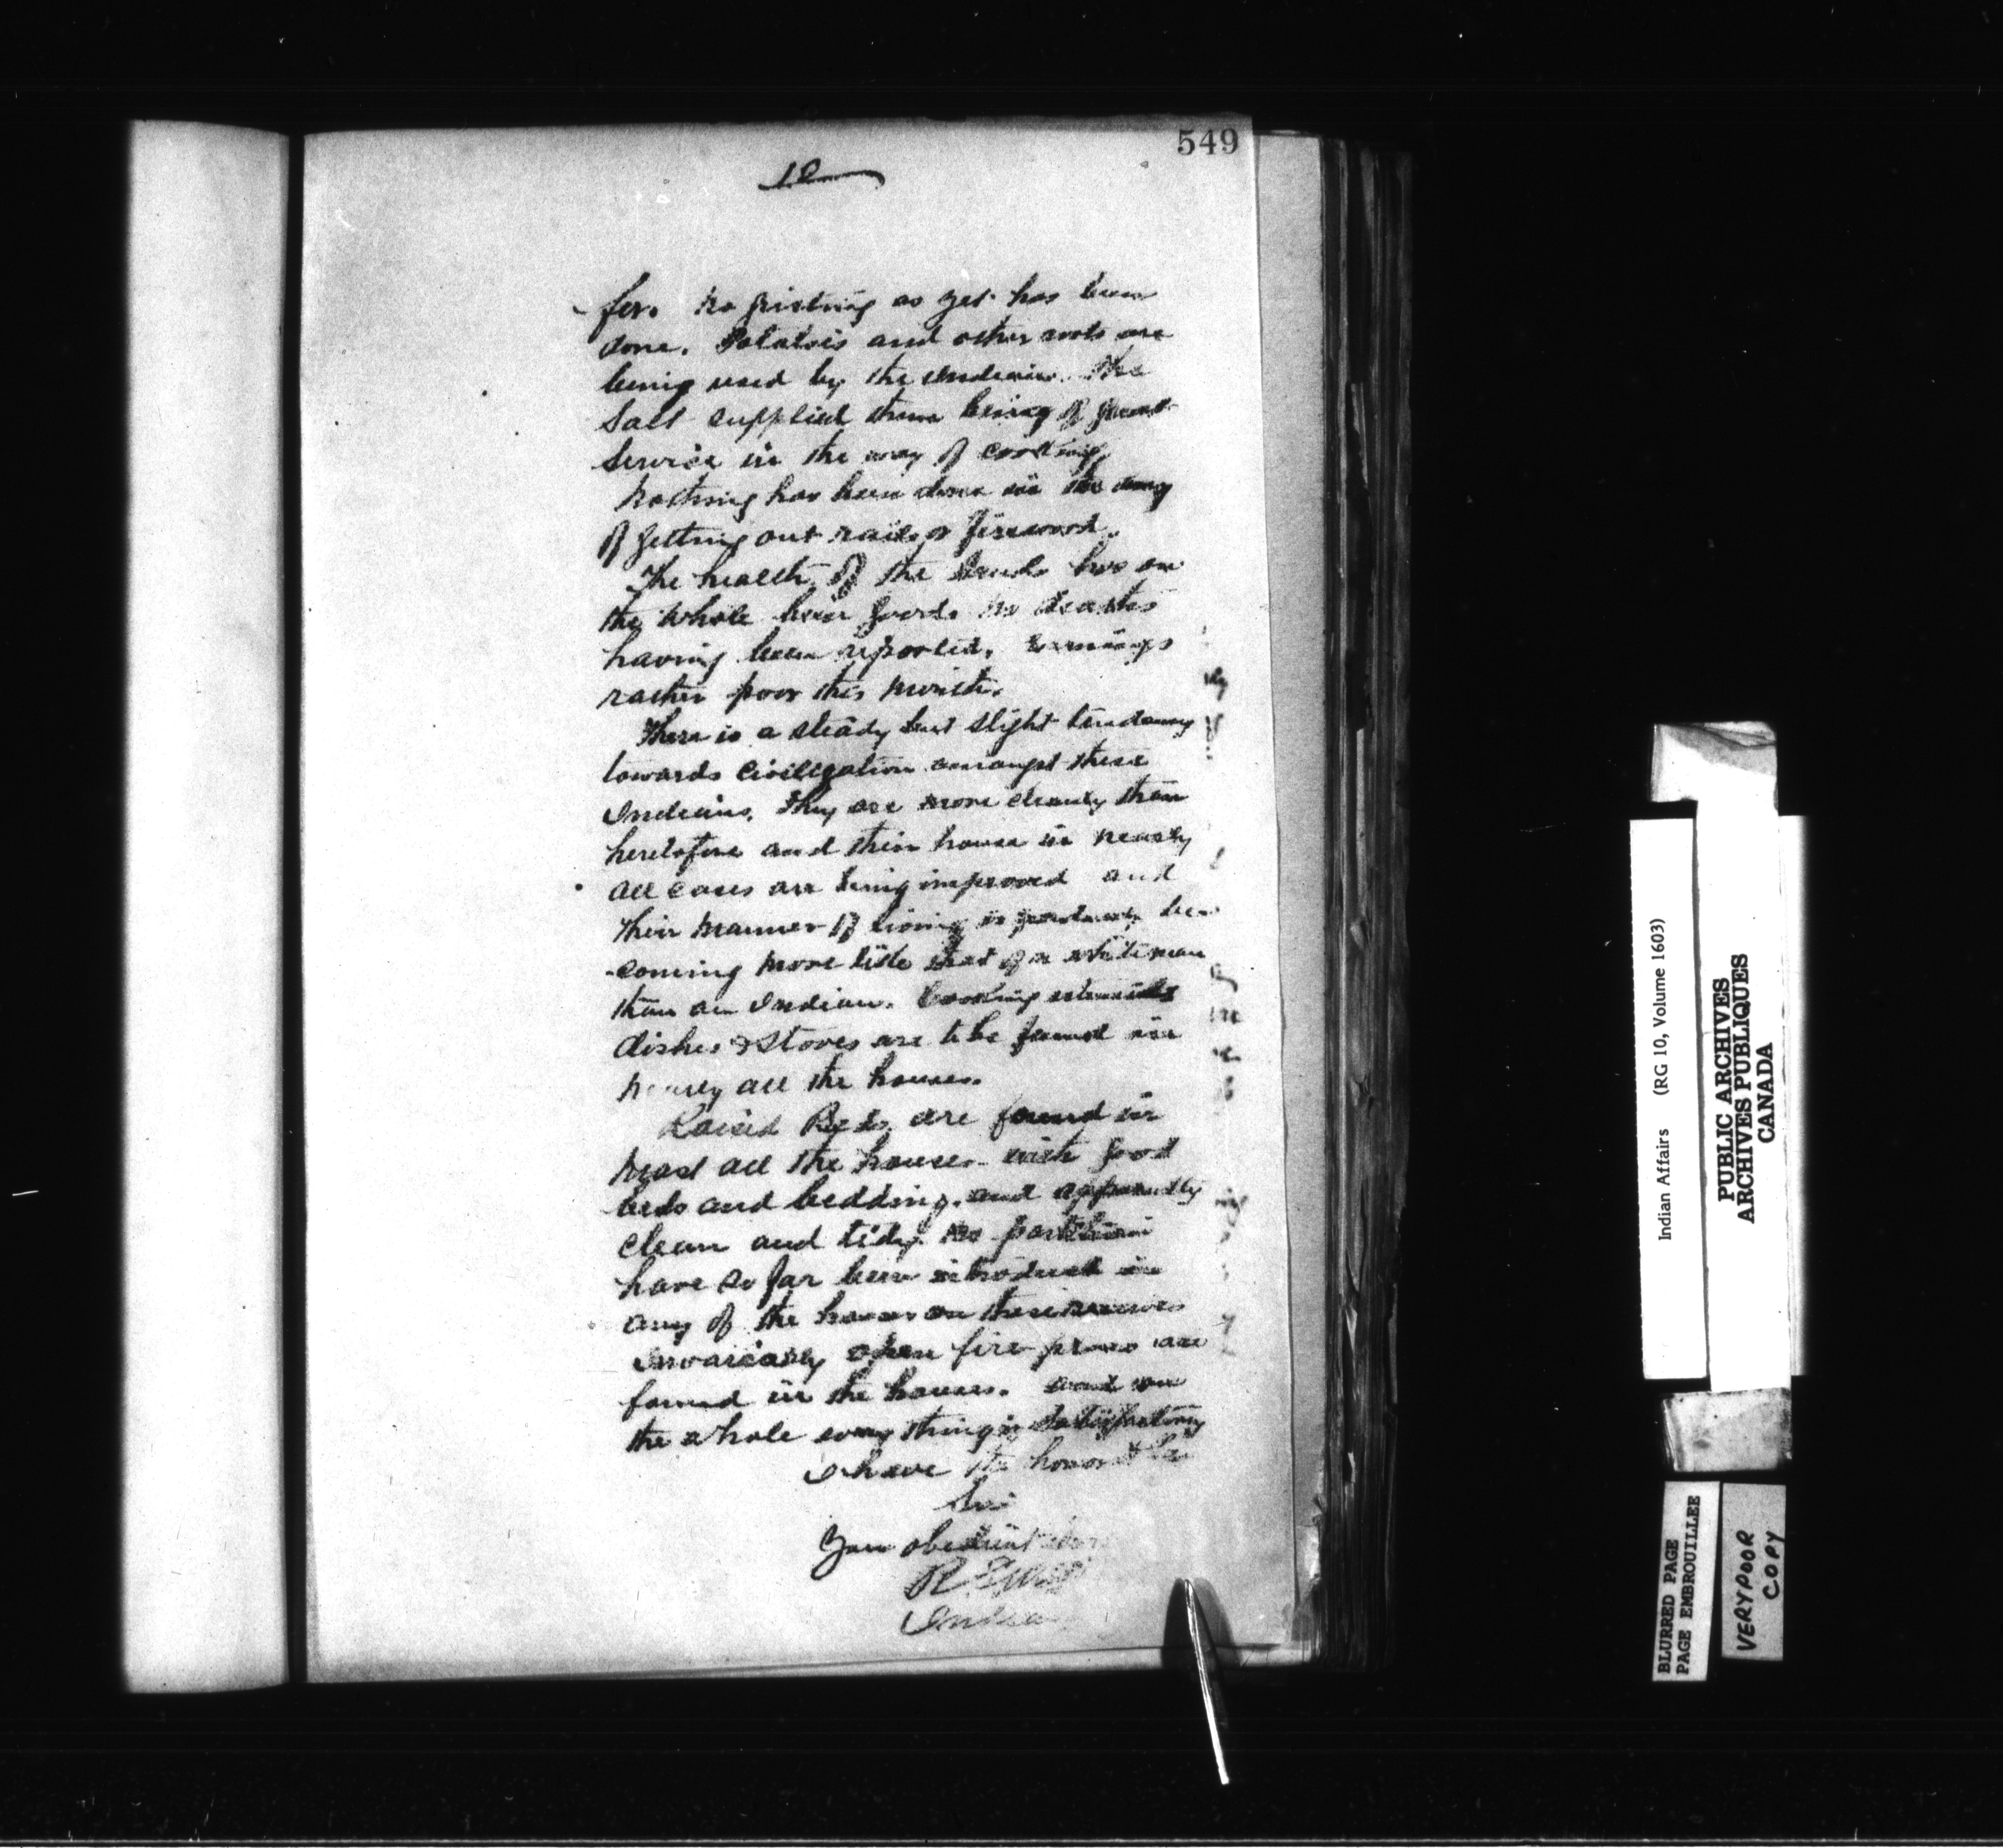 549
10
-fer. No gristing as yet has been
done. Potatoes and other roots are
being used by the Indians. The
Salt supplied them being of great
service in the way of cooking.
Nothing has been done in the way
of getting out rails or firewood.
The health of the Bands has on
the whole been good. No deaths
having been reported. Earnings
rather poor this month.
There is a steady but slight tendancy
towards civilization amongst these
Indians. They are more cleanly than
heretofore and their house in nearly
all cases are being improved and
their manner of living is gradually be-
-coming more like that of a whiteman
than an Indian. Cooking utensils
dishes & stoves are to be found in
nearly all the houses.
Raised Beds are found in
most all the houses with good
beds and bedding. and apparently
clean and tidy. No partitions
have so far been introduced in
any of the houses on these reserves
Invariably open fire places are
found in the houses. and on
the whole every thing is satisfactory
I have the honor to be
Sir
Your obedient
R
Indian
Indian Affairs (RG 10, Volume 1603)
PUBLIC ARCHIVES
ARCHIVES PUBLIQUES
CANADA
BLURRED PAGE
PAGE EMBROUILLEE
VERY POOR
COPY